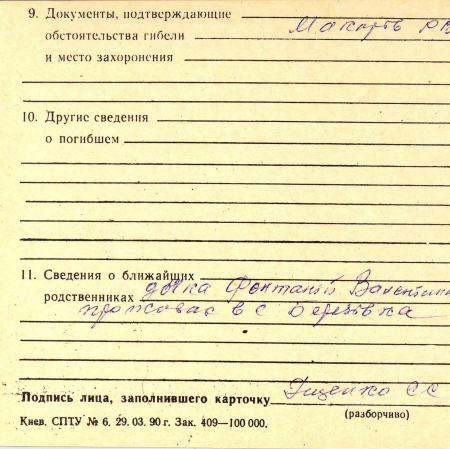 9. Документы, подтверждающие
обстоятельства гибели
и место захоронения
10. Другие сведения
о погибшем
11. Сведения о ближайших
родственниках дочка Валентина
проживає в с Березівка
Подпись лица, заполнившего карточку
(разборчиво)
Киев. СПТУ № 6. 29. 03. 90 г. Зак. 409—100 000.